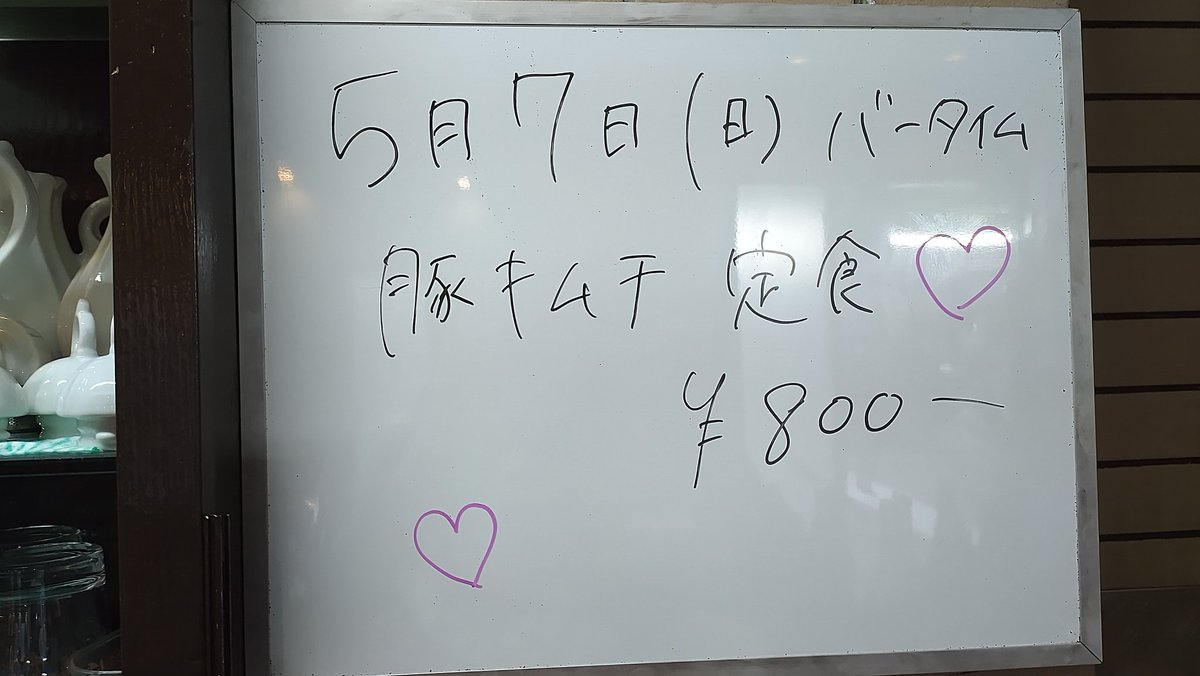 5月7日(日) バータイム
豚キムチ 定食♡
¥800ー
♡